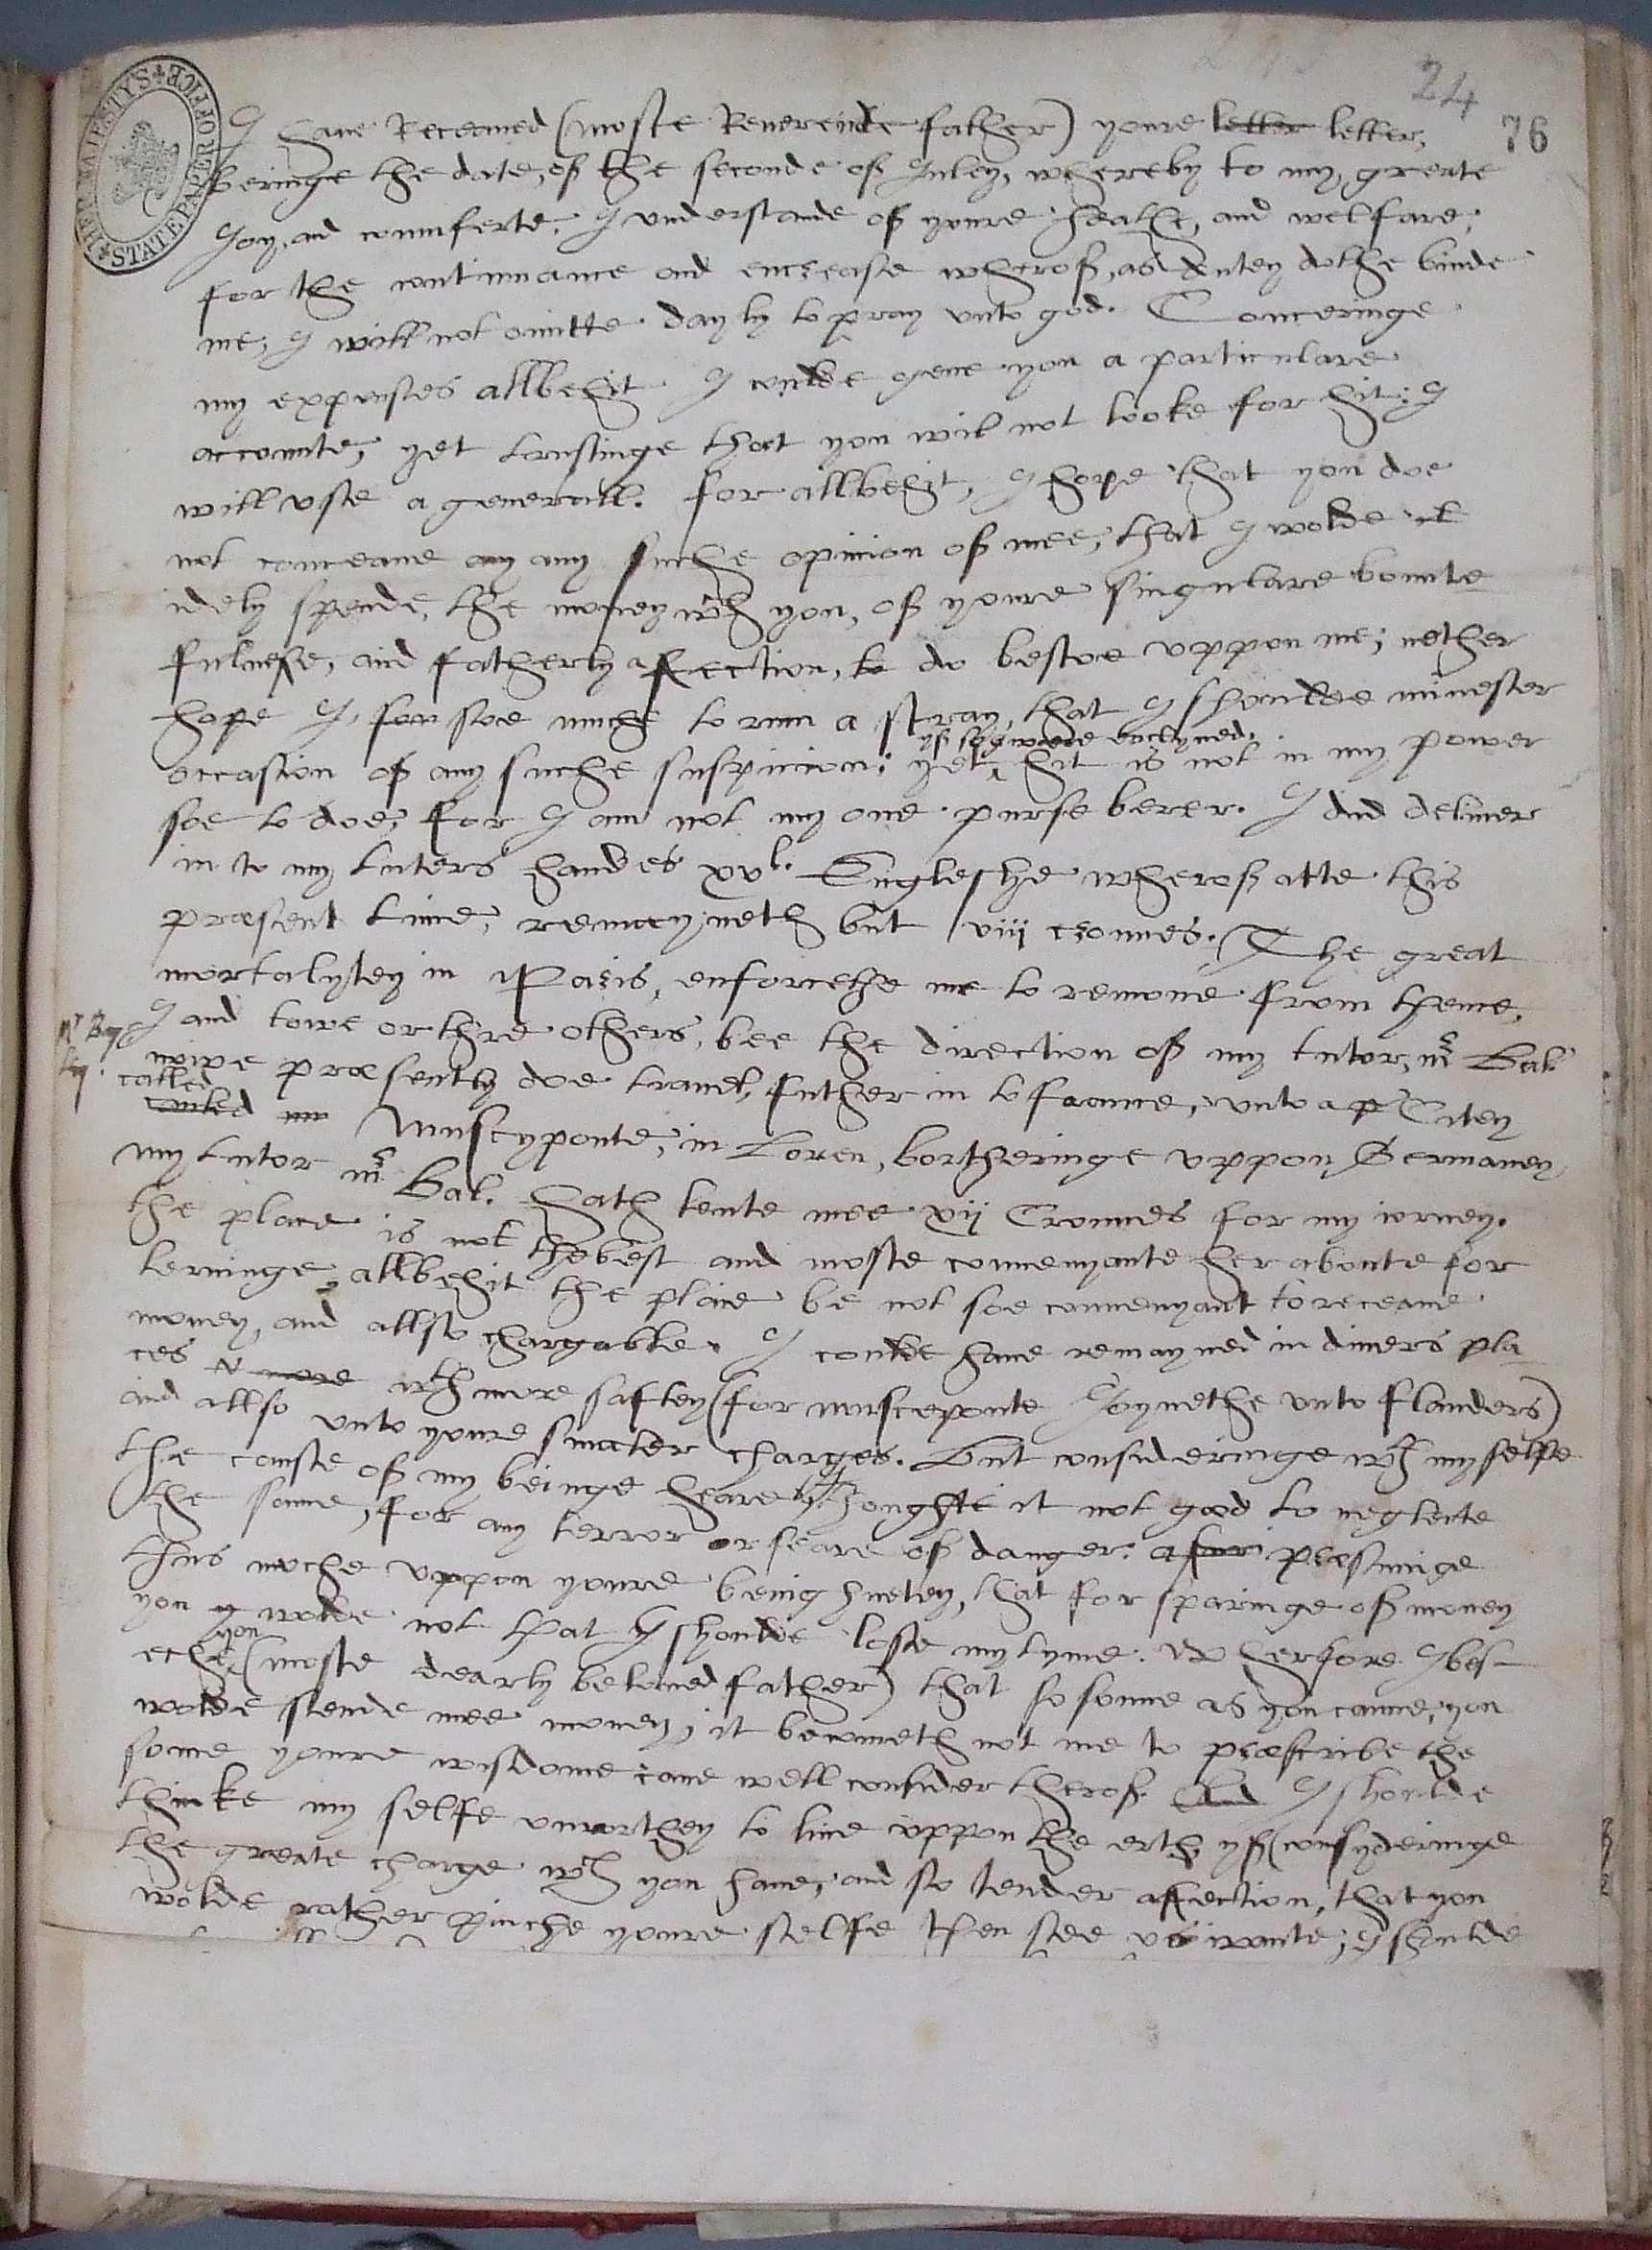 24
76
HER MAJESTYS STATE PAPER OFFICE
I have Receaued (moste Reuerende father) youre letter letter,
beringe the date, of the seconde of Iuley, whereby to my, greate
Ioy, and coumferte, I understande of youre healthe, and welfare,
for the continuance and encrease wherof, as dutey dothe binde
me, I will not omitte dayly to pray vnto god. Conceringe
my expenses allbehit I coulde geue you a particulare
accounte, yet trustinge that you wil not looke for hit; I
will vse a generall. for allbehit, I hope that you doe
not conceaue any any suche opinion of mee, that I wolde
idely spende, the money wch you, of youre singulare bounte
fulnesse, and fatherly affection, to do bestoe vppon me; nether
hope I, soe muche to runn a stray, that I shoulde minester
occasion of any suche suspicion: yet, hit is not in my power
yf soe I were enclyned,
soe to doe, for I am not my one purse berer. I did deliuer
in to my tuters handes xvl. Engleshe wherof atte this
præsent time, remayneth but viii crounes. The great
mortalytey in Paris, enforcethe me to remoue from thence,
I and towe or thre others, bee the direction of my tutor, mr Bal.
nowe præsently doe trauel, futher in to france, vnto a Citey
called
Muscyponte, in Loren, bortheringe vppon Germaney,
my tutor mr Bal. hath lente mee xii Crounes for my iorney.
the place is not the best and moste conuenyante her aboute for
lerninge, allbehit the place be not soe conuenyant to receaue
money, and allso chargable. I coulde haue remayned in diuers pla
ces wth more saftey (for musceponte Ioynethe vnto flanders)
and allso vnto youre smaler charges. But consideringe wth my selfe
the cause of my beinge heare, I thoughte it not good to neglecte
the same, for any terror or feare of danger: præsuminge
thus muche vppon youre benighnetey, that for sparinge of money
you wolde not that I shoulde lose my tyme. Wherfore I bes-
eche you (moste dearly beloued father) that so soune as you canne, you
wolde sende mee money, it becometh not me to præscribe the
some youre wisdome cane well consider therof. And I shoulde
thinke my selfe unworthey to liue vppon the erth, yf (consyderinge
the greate charge wch you haue, and so tender affection, that you
wolde rather pinche youre selfe then see vs wante; I shulde